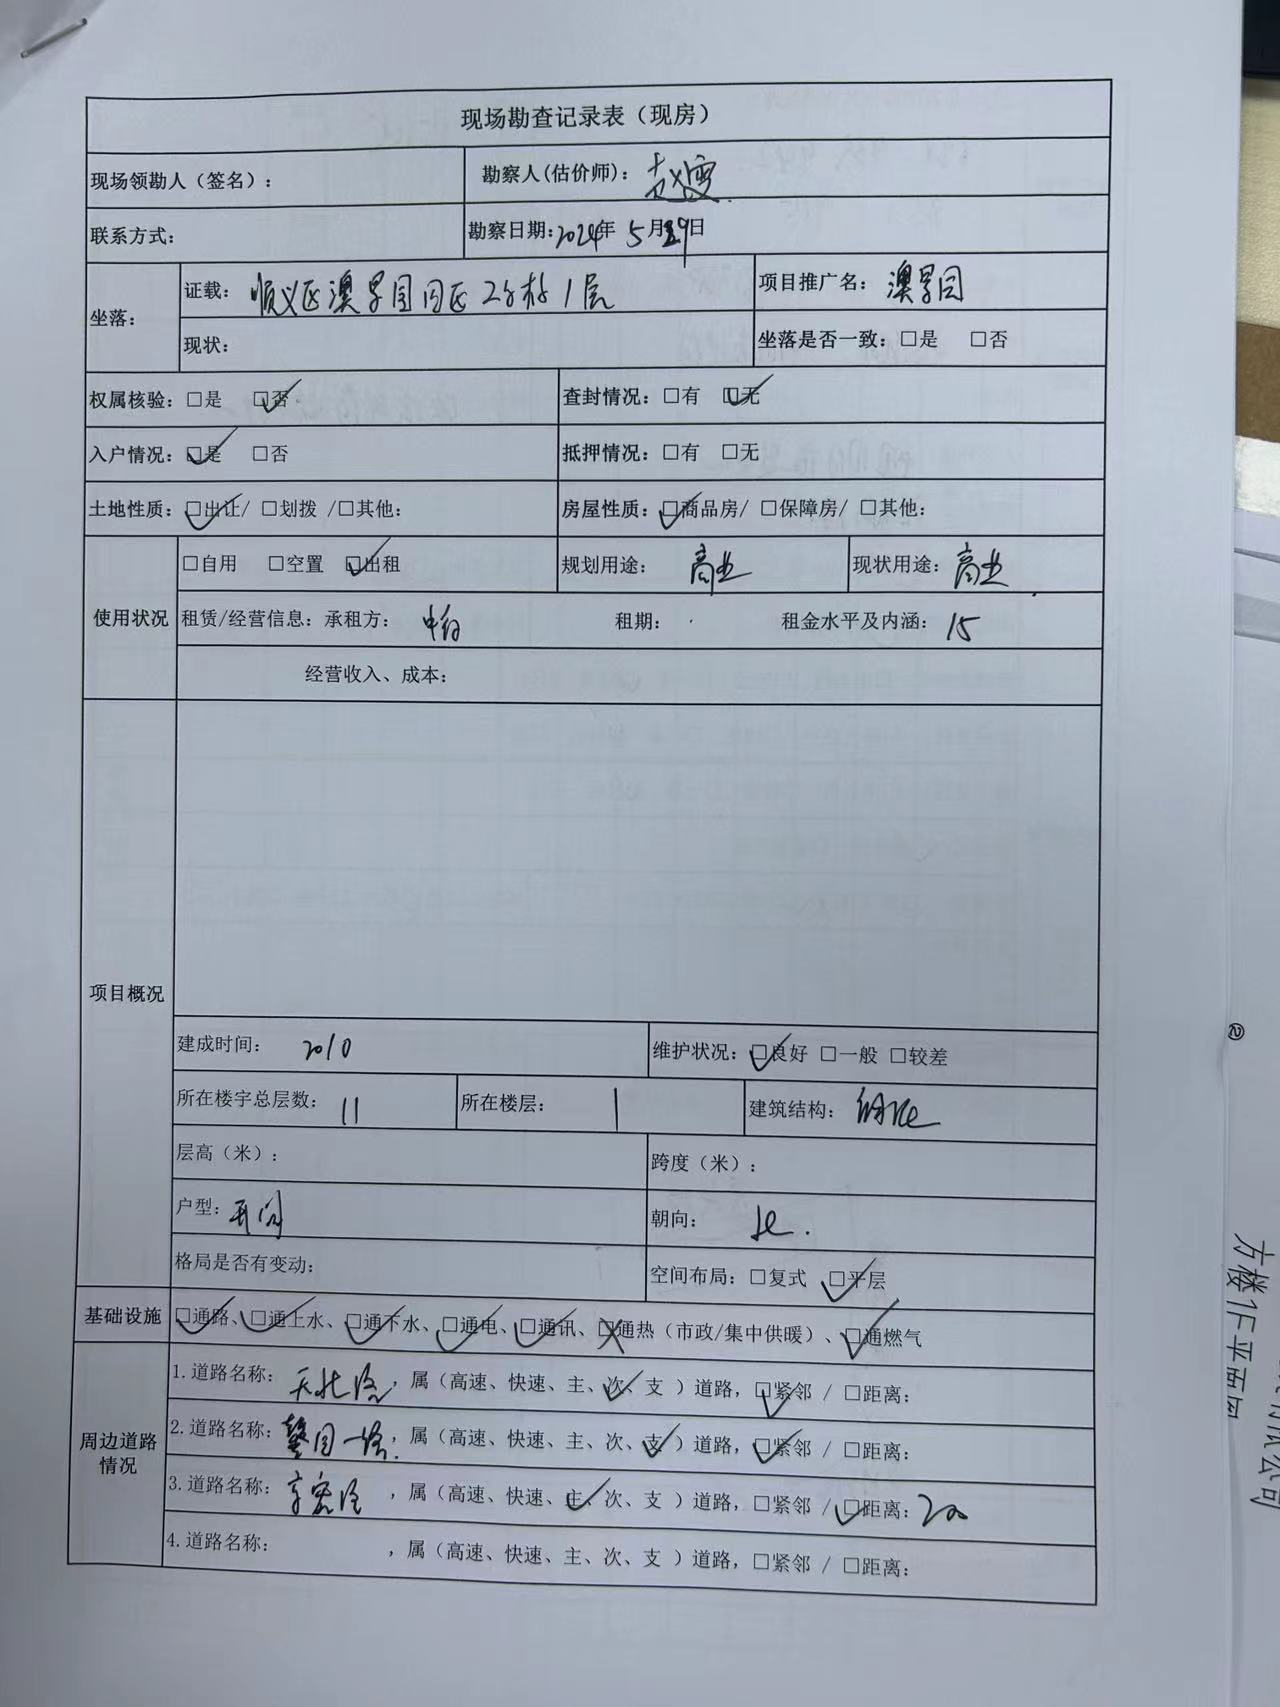 现场勘查记录表（现房）
现场领勘人（签名）： 勘察人(估价师)：
联系方式： 勘察日期：2024年 5月29日
坐落： 证载：顺义区澳景园园区2号楼1层 项目推广名：澳景园
现状： 坐落是否一致：□是 □否
权属核验：□是 ☑否 查封情况：□有 ☑无
入户情况：☑是 □否 抵押情况：□有 □无
土地性质：☑出让/ □划拨 /□其他： 房屋性质：☑商品房/ □保障房/ □其他：
使用状况 □自用 □空置 ☑出租 规划用途：商业 现状用途：商业
租赁/经营信息：承租方： 租期： 租金水平及内涵：15
经营收入、成本：
项目概况
建成时间：2010 维护状况：☑良好 □一般 □较差
所在楼宇总层数：11 所在楼层：1 建筑结构：钢混
层高（米）： 跨度（米）：
户型：开间 朝向：北.
格局是否有变动： 空间布局：□复式 ☑平层
基础设施 ☑通路、☑通上水、☑通下水、☑通电、☑通讯、☒通热（市政/集中供暖）、☑通燃气
周边道路情况
1.道路名称：天北路，属（高速、快速、主、次、支 ）道路，☑紧邻 / □距离：
2.道路名称：馨园一路，属（高速、快速、主、次、支 ）道路，☑紧邻 / □距离：
3.道路名称： ，属（高速、快速、主、次、支 ）道路，□紧邻 / ☑距离：200
4.道路名称： ，属（高速、快速、主、次、支 ）道路，□紧邻 / □距离：
②
方楼1F平面图
限公司